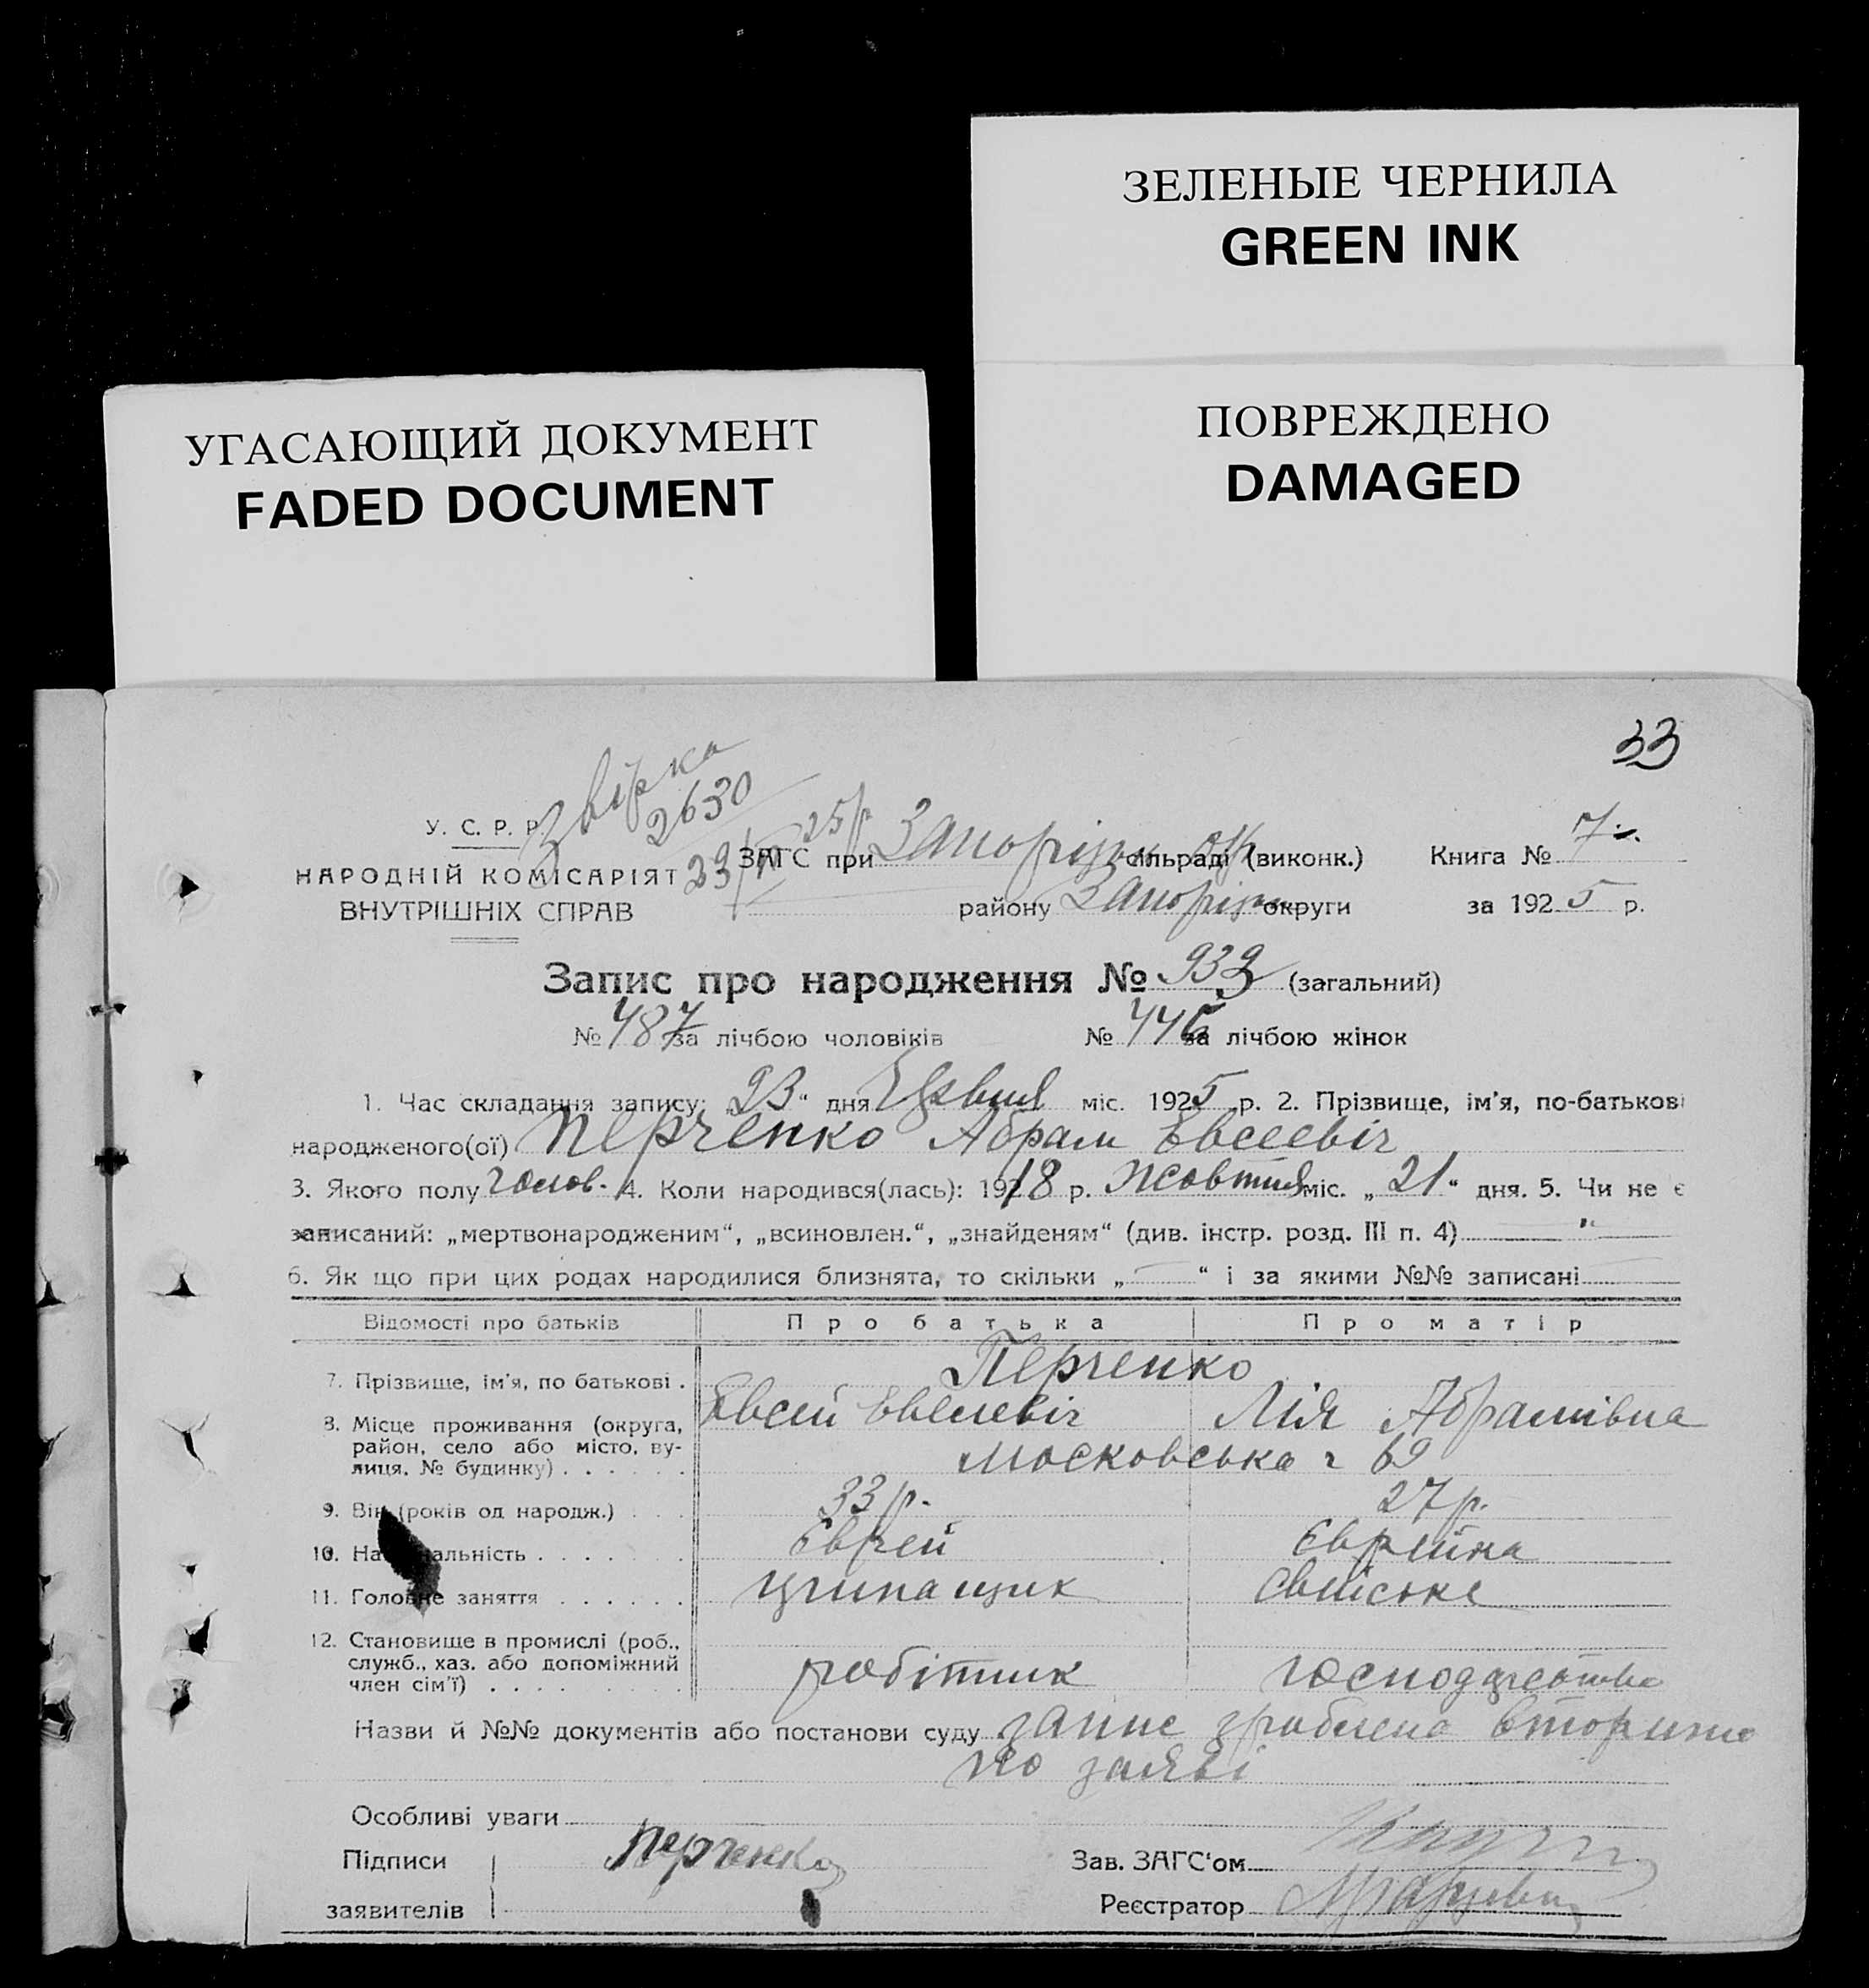 ЗЕЛЕНЫЕ ЧЕРНИЛА
GREEN INK
УГАСАЮЩИЙ ДОКУМЕНТ
FADED DOCUMENT
ПОВРЕЖДЕНО
DAMAGED
33
Звірка
2630
25р
У. С. Р. Р.
НАРОДНІЙ КОМІСАРІЯТ
ВНУТРІШНІХ СПРАВ
ЗАГС при Запоріз окр сільраді (виконк.) Книга № 7
району Запоріз округи за 1925 р.
Запис про народження № 933 (загальний)
№ 487 за лічбою чоловіків № 446 за лічбою жінок
1. Час складання запису: „23“ дня міс. 1925 р. 2. Прізвище, ім'я, по-батькові
народженого(ої) Перченко Абрам Евсеевіч
3. Якого полу чолов. 4. Коли народився(лась): 1918 р. Жовтня міс. „21“ дня. 5. Чи не є
записаний: „мертвонародженим“, „всиновлен.“, „знайденям“ (див. інстр. розд. III п. 4) — " —
6. Як що при цих родах народилися близнята, то скільки „—“ і за якими №№ записані
Відомості про батьків Про батька Про матір
7. Прізвище, ім'я, по батькові . Перченко
Евсей Лія Абрамівна
8. Місце проживання (округа, район, село або місто, вулиця, № будинку) . . . . . . Московська ч 69
9. Вік (років од народж.) . . . 33 р. 27 р.
10. Національність . . . . . Єврей Єврейка
11. Головне заняття . . . . . . свійське
12. Становище в промислі (роб., служб., хаз. або допоміжний член сім'ї) . . . . робітник господарство
Назви й №№ документів або постанови суду запис зроблено вторинно
по заяві
Особливі уваги
Підписи Перченко Зав. ЗАГС'ом
заявителів Реєстратор